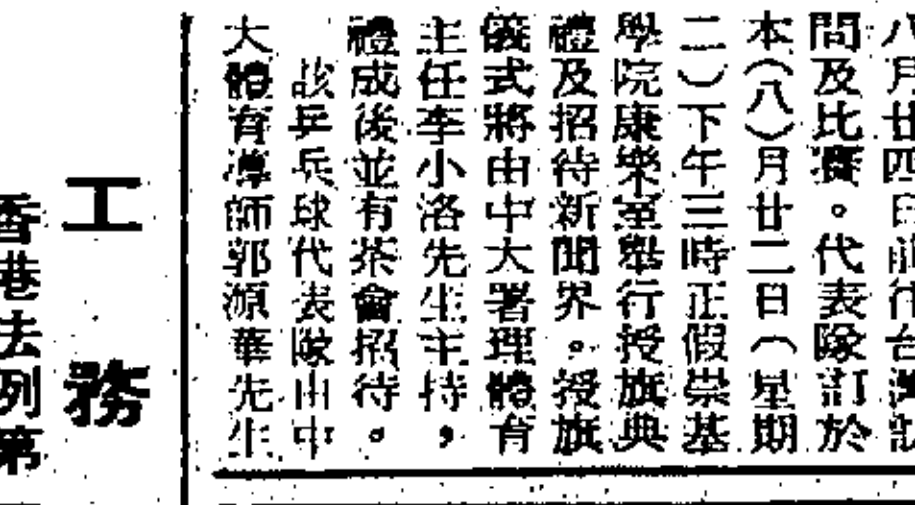 八月廿四日前往台灣訪
問及比賽。代表隊訂於
本（八）月廿二日（星期
二）下午三時正假崇基
學院康樂室舉行授旗典
禮及招待新聞界。授旗
儀式將由中大署理體育
主任李小洛先生主持，
禮成後並有茶會招待。
該乒乓球代表隊由中
大體育導師郭源華先生
工務
香港法例第